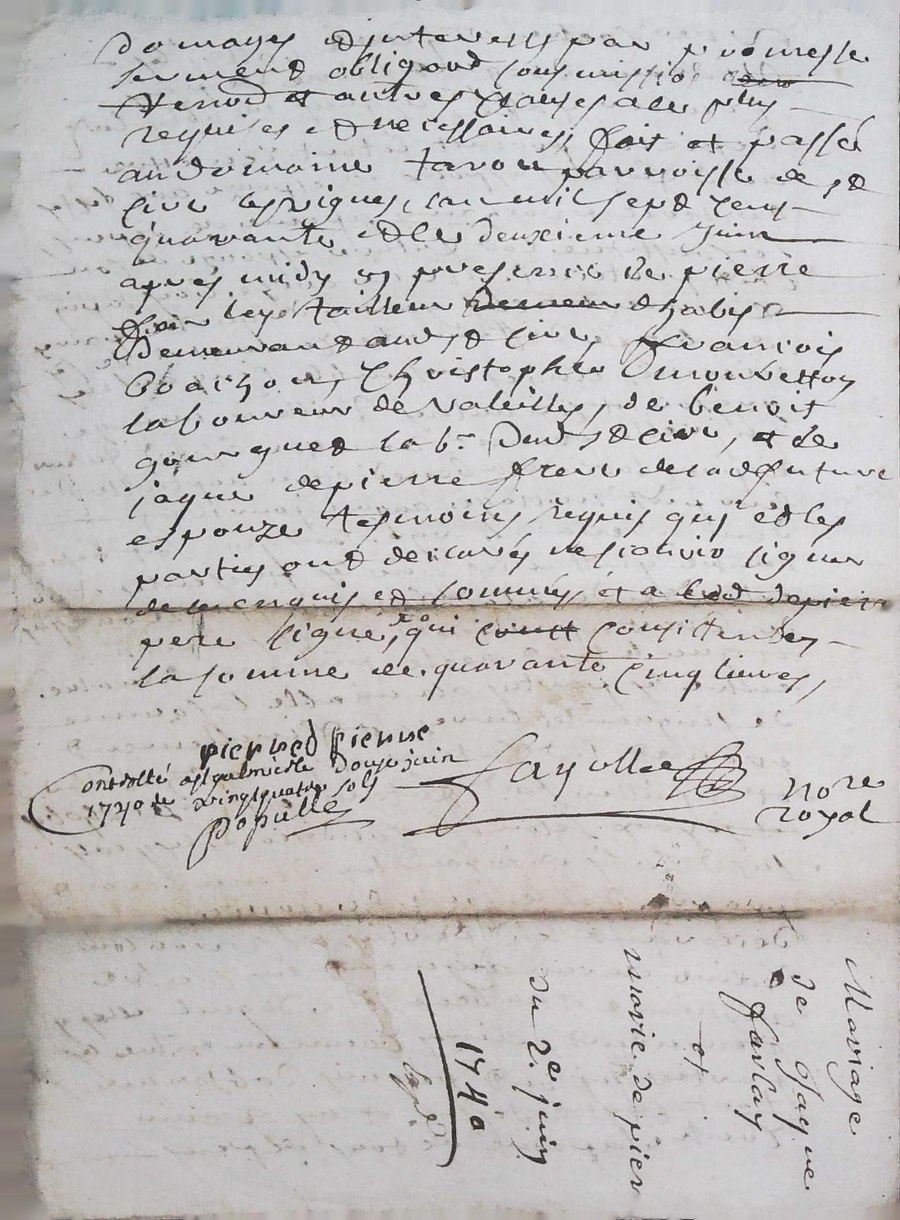 domages & interests par promesse
serment obligaõn soumissioñ
renoñ et autres clauses a ce plus
requises et necessaires, fait et passé
au domaine parroisse de st
cire les vignes, l'an mil sept cent
quarante et le deuxieme juin
apres midy en presence de pierre
tailleur demeur d'habis
demeurant aud st cire, francois
Christophle
laboureur de valeille, de benoit
lab.r dud st cire, et de
jaque depierre frere de lad future
espouze tesmoins requis qui et les
parties ont declarés ne scavoir signer
de ce enquis et sommés, et a led depierre
pere signé, qui consistent en
la somme de quarante cinq livres,
pierre d pierre
Controllé le douze juin
1740 vingt quatre sols
Populle
fayolle
no.re
royal
Mariage
de Jaque
farlay
et
marie de pier
du 2.e juin
1740